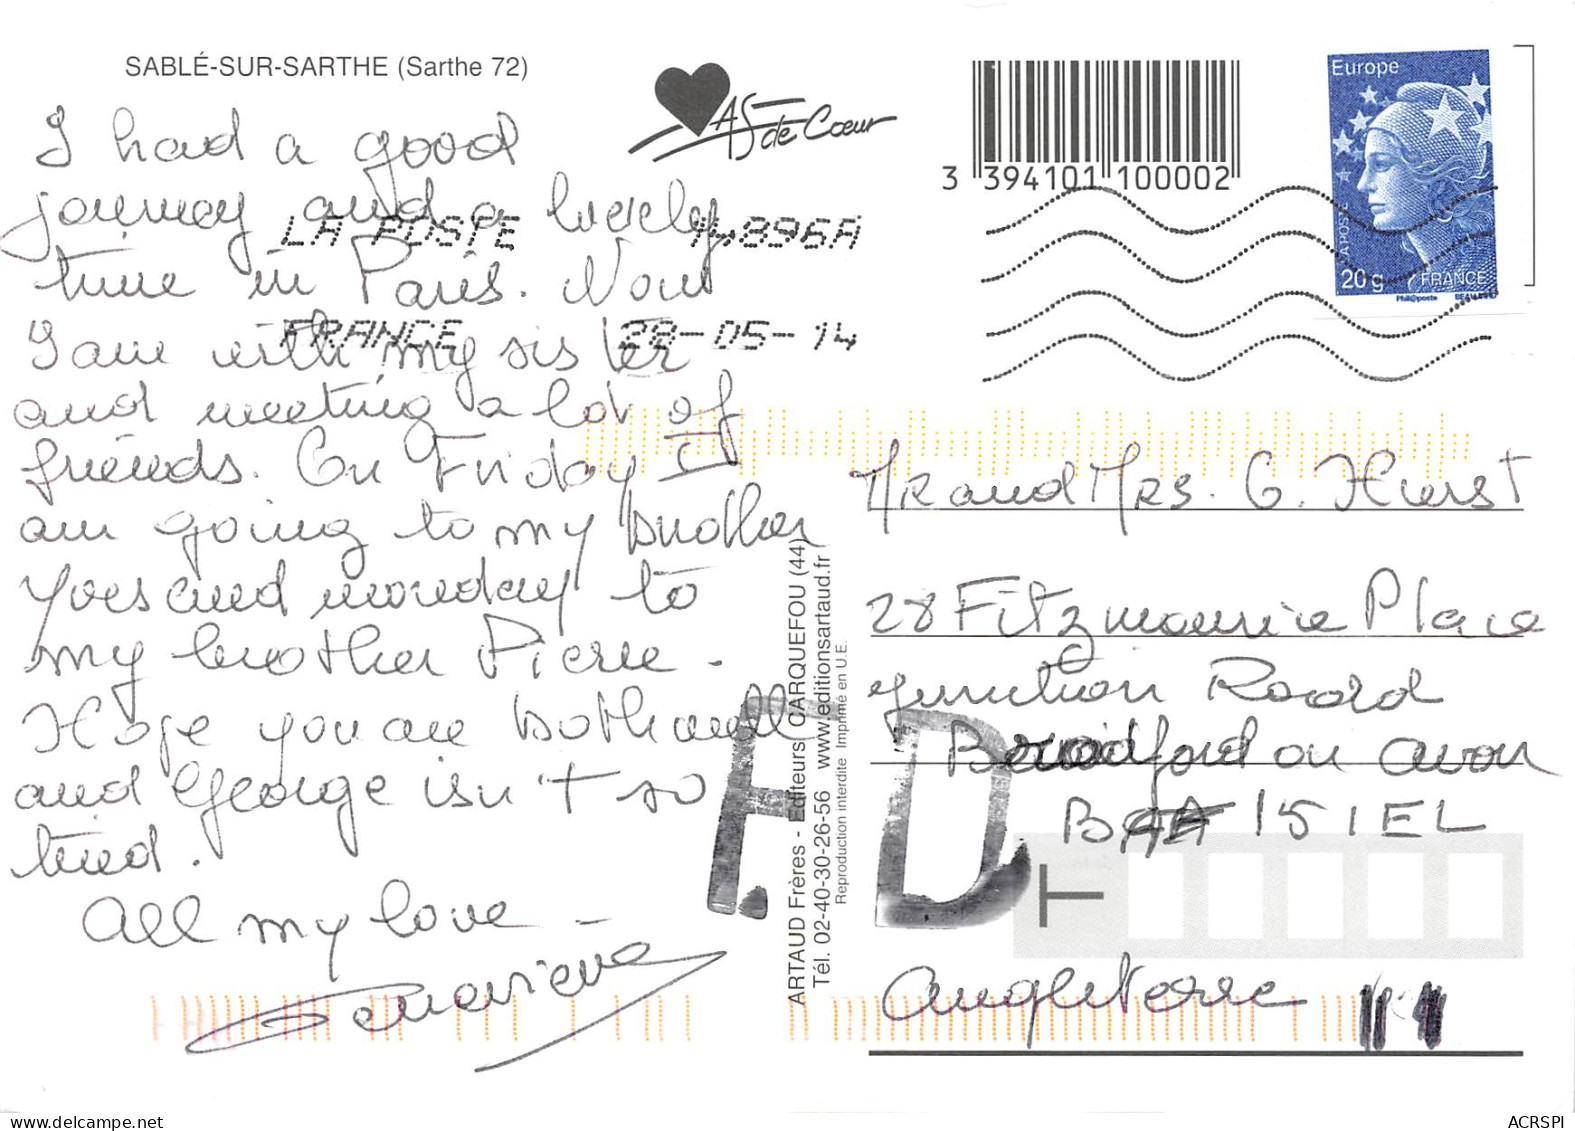 SABLÉ-SUR-SARTHE (Sarthe 72)
I had a good
journey and a lovely
time in Paris. Now
I am with my sister
and meeting a lot of
friends. On Friday I
am going to my brother
Yves and monday to
my brother Pierre.
Hope you are both well
and George isn't so
tired.
All my love -
Genevieve
AS de Cœur
3 394101 100002
Europe
LA POSTE
20 g
FRANCE
Phil@poste
LA POSTE 14896A
FRANCE 28-05-14
ARTAUD Frères - Editeurs CARQUEFOU (44)
Tél. 02-40-30-26-56 www.editionsartaud.fr
Reproduction interdite Imprimé en U.E.
Mr and Mrs. G. Hurst
28 Fitzmaurice Place
Junction Road
Bradford on avon
BA 15 1EL
T
Angleterre
ACRSPI